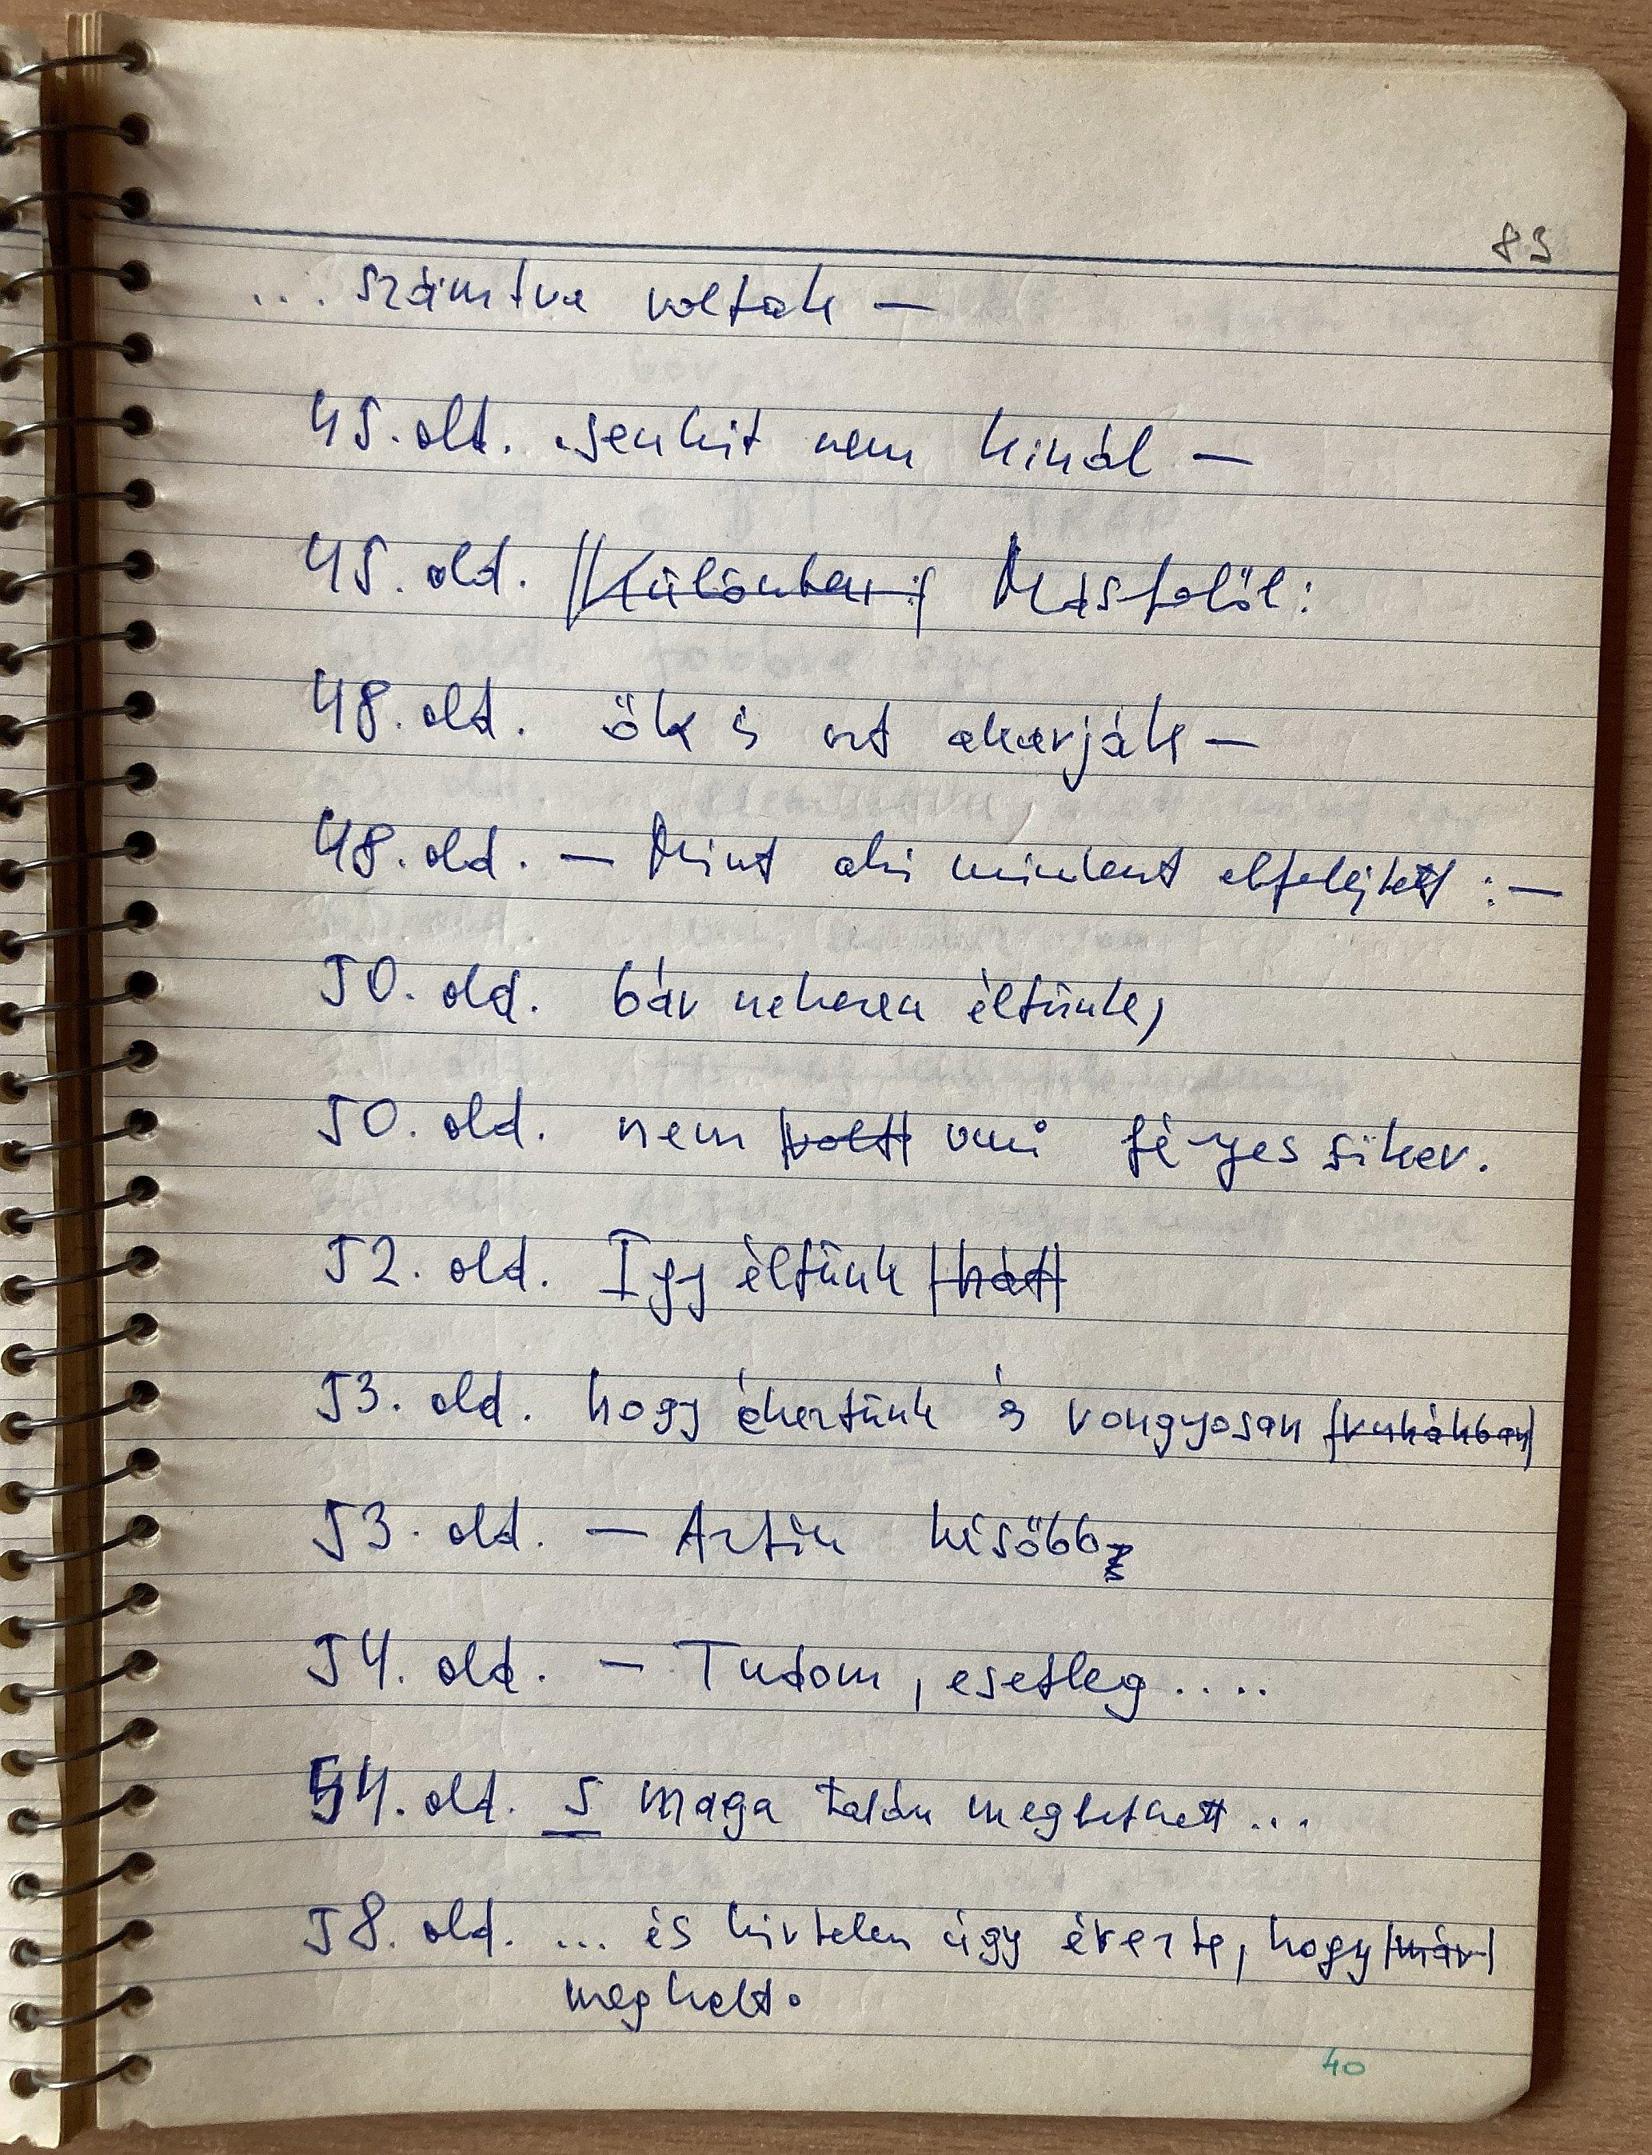 83
... számítva voltak —
45. old. senkit nem kinál —
45. old. Különben: Másfelől:
48. old. ők is ezt akarják —
48. old. — Mint aki mindent elfelejtett : —
50. old. bár nehezen éltünk,
50. old. nem volt vmi fényes siker.
52. old. Így éltünk hát
53. old. hogy éheztünk és rongyosan ruhákban
53. old. — Aztán később
54. old. — Tudom, esetleg ....
54. old. S maga talán meglehett ...
58. old. ... és hirtelen úgy érezte, hogy már
meghalt.
40